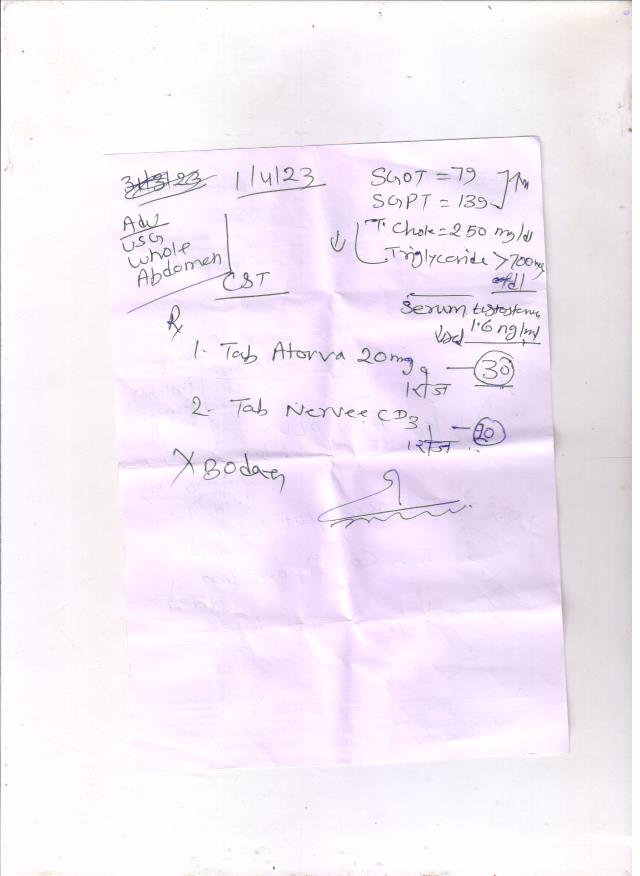 31/3/23 1/4/23
SGOT = 79
SGPT = 139
Adv
USG
Whole
Abdomen
T. Chole = 250 mg/dl
Triglyceride >700 mg/dl
CST
Serum testosterone
1.6 ng/ml
Rx
1. Tab Atorva 20mg — 30
1 रोज
2. Tab Nervee CD3 — 20
1 रोज
X 30 days